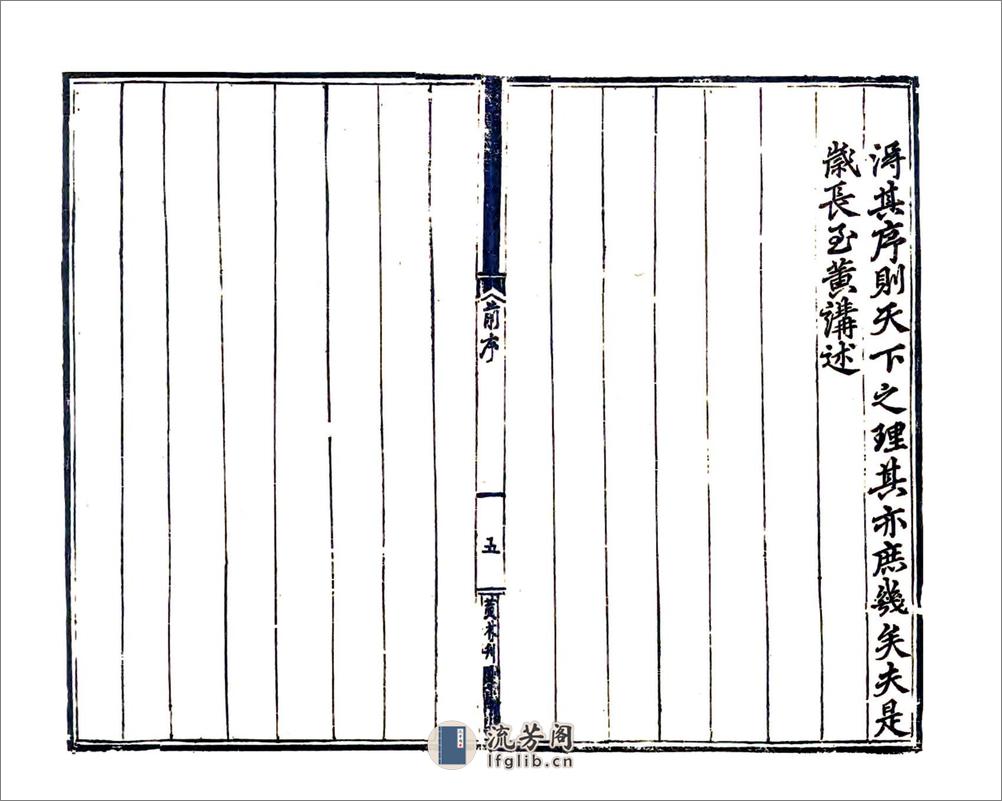 淂其序則天下之理其亦庶幾矣夫是
歳長至黄講述
前序
五
黄林刋
流芳阁
lfglib.cn